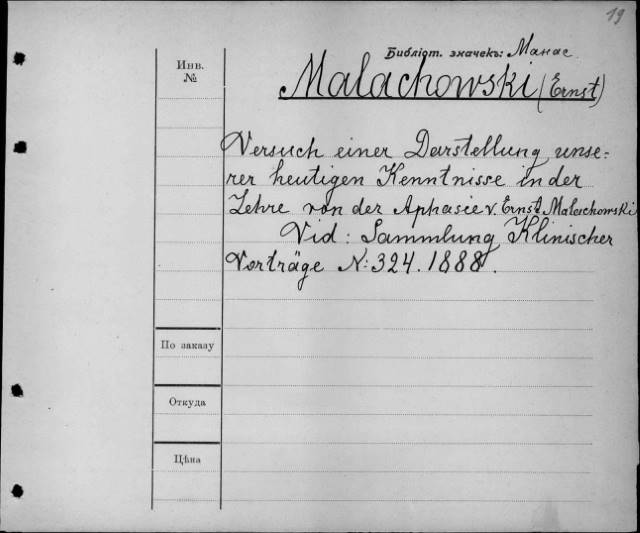 19
Библіот. значекъ: Манас
Инв.
№
Malachowski (Ernst)
Versuch einer Darstellung unse=
rer heutigen Kenntnisse in der
Lehre von der Aphasie v. Ernst Malachowski
Vid: Sammlung Klinischer
Vorträge N: 324. 1888.
По заказу
Откуда
Цѣна